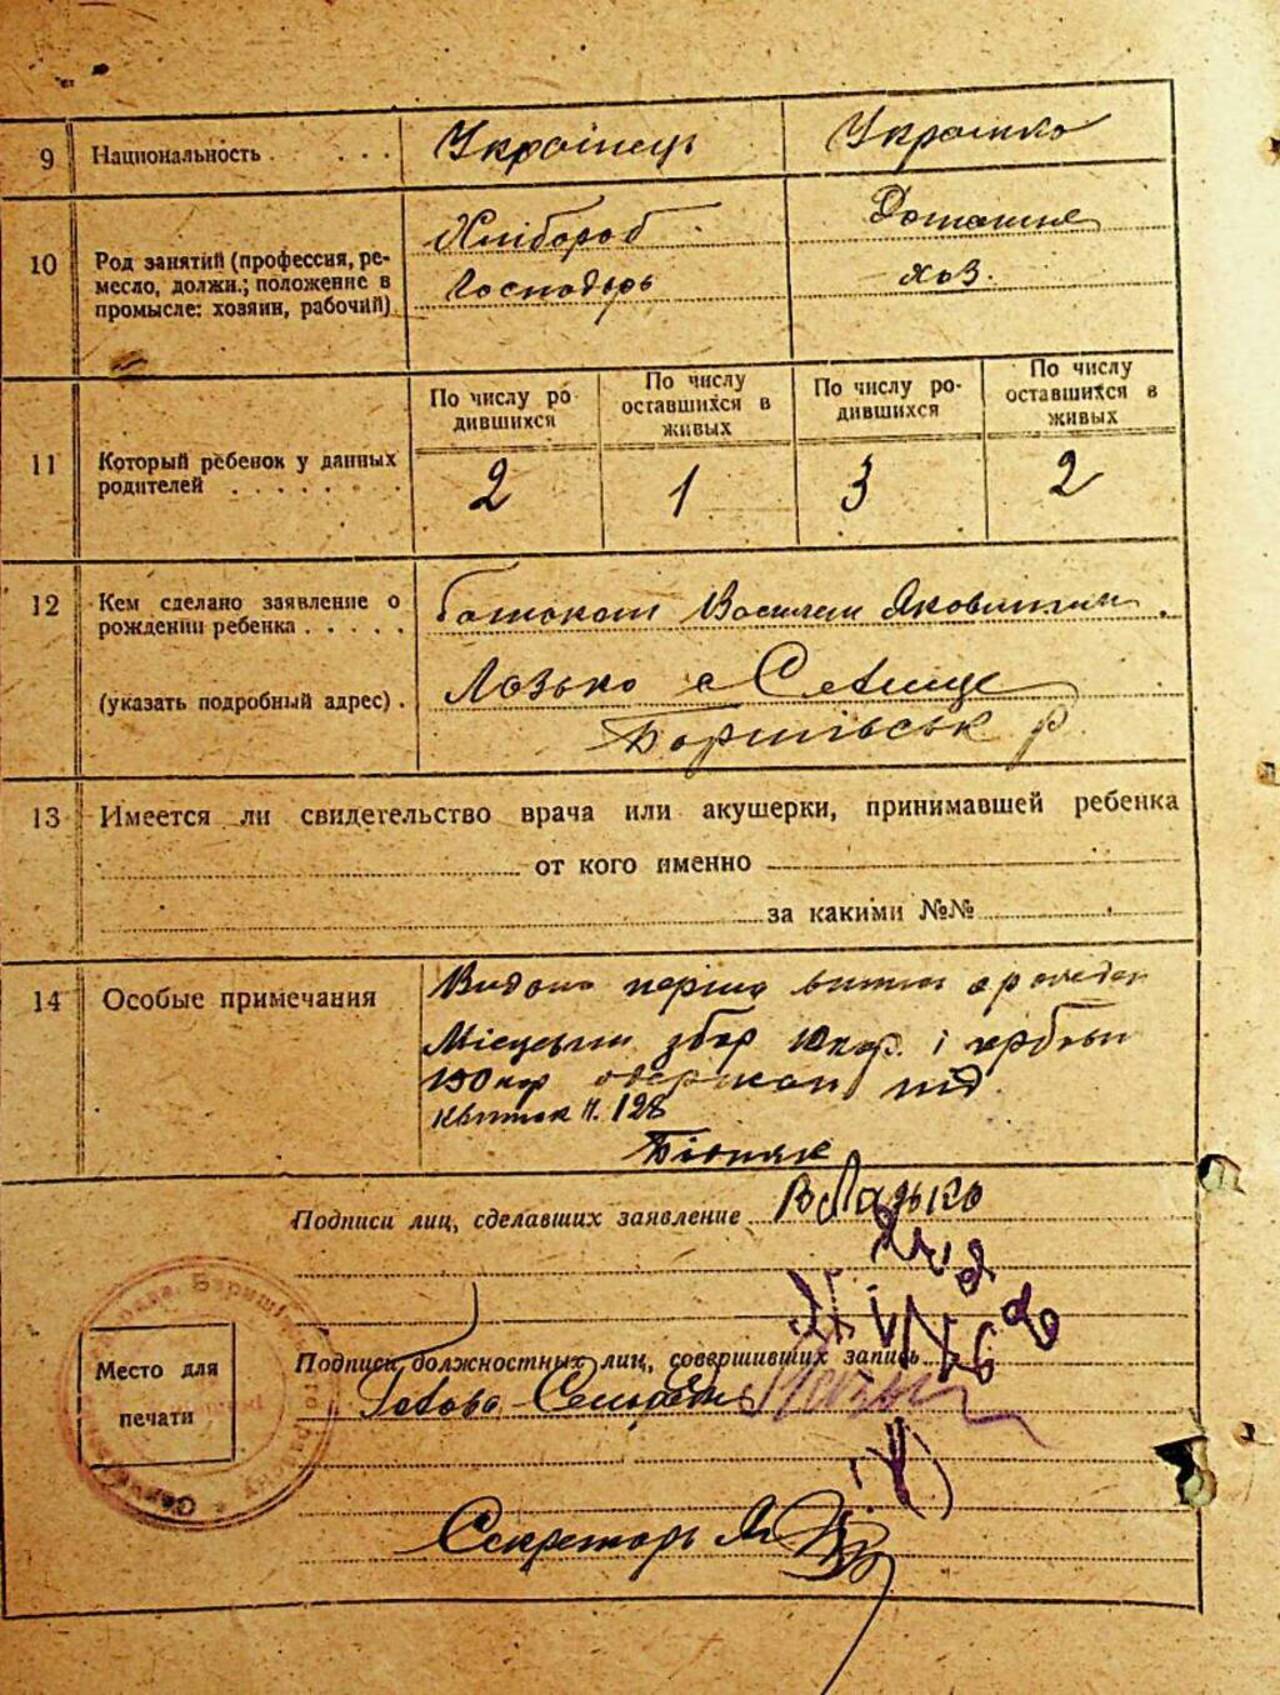 9 Национальность . . . . . Українець Українко
10 Род занятий (профессия, ре-
месло, должн.; положение в
промысле: хозяин, рабочий)
Хлібороб Домашнє
Господарь хоз.
11 Который ребенок у данных
родителей . . . . . . .
По числу ро
дившихся
По числу
оставшихся в
живых
По числу ро-
дившихся
По числу
оставшихся в
живых
2 1 3 2
12 Кем сделано заявление о
рождении ребенка . . . . .
(указать подробный адрес) .
батьком Василем Яковлевим.
Лозько с Селище
Боришівськ р
13 Имеется ли свидетельство врача или акушерки, принимавшей ребенка
от кого именно
за какими №№
14 Особые примечания
Видано перша
Місцевий збор 10 кор. і гербовий
150 кор одержкан під
квиток Н. 128
Подписи лиц, сделавших заявление В Лазько
Место для
печати
Подписи должностных лиц, совершивших запись
Голова Сельради
Секретарь